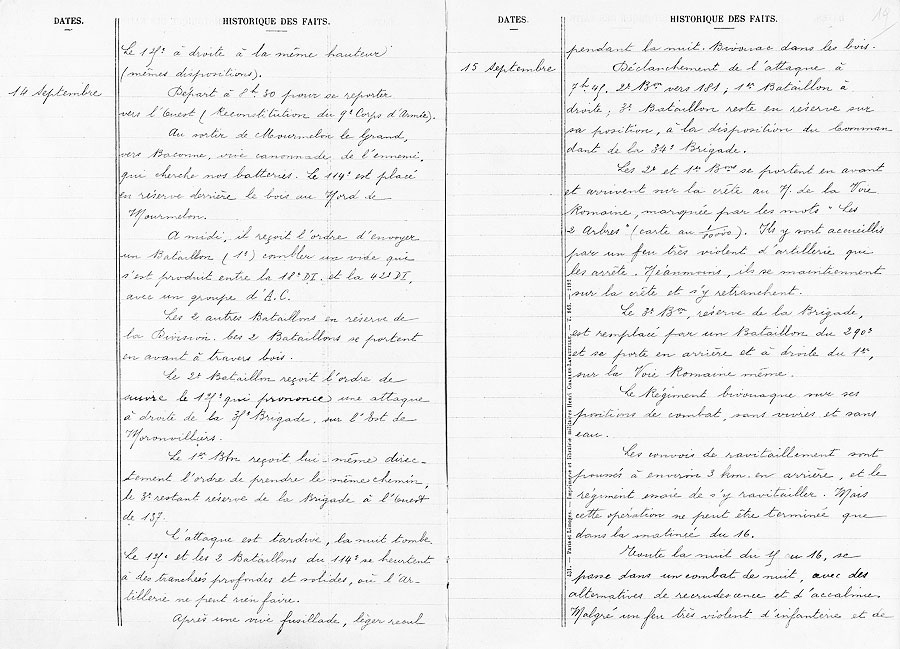 DATES.
HISTORIQUE DES FAITS.
Le 125e à droite à la même hauteur
(mêmes dispositions).
14 Septembre
Départ à 8h 30 pour se reporter
vers l'Ouest (Reconstitution du 9e Corps d'Armée).
Au sortir de Mourmelon le Grand,
vers Baconne, vive canonnade de l'ennemi,
qui cherche nos batteries. Le 114e est placé
en réserve derrière le bois au Nord de
Mourmelon.
A midi, il reçoit l'ordre d'envoyer
un Bataillon (1er) combler un vide qui
s'est produit entre la 18e DI. et la 42e DI,
avec un groupe d'A.C.
Les 2 autres Bataillons en réserve de
la Division. Les 2 Bataillons se portent
en avant à travers bois.
Le 2e Bataillon reçoit l'ordre de
suivre le 125e qui prononce une attaque
à droite de la 35e Brigade, sur l'Est de
Moronvilliers.
Le 1er Btn reçoit lui-même direc-
tement l'ordre de prendre le même chemin,
le 3e restant réserve de la Brigade à l'Ouest
de 137.
L'attaque est tardive, la nuit tombe.
Le 125e et les 2 Bataillons du 114e se heurtent
à des tranchées profondes et solides, où l'Ar-
tillerie ne peut rien faire.
Après une vive fusillade, léger recul
DATES.
HISTORIQUE DES FAITS.
19
pendant la nuit. Bivouac dans les bois.
15 Septembre
Déclanchement de l'attaque à
7h.45. 2e Bon vers 181; 1er Bataillon à
droite; 3e Bataillon reste en réserve sur
sa position, à la disposition du Comman
dant de la 34e Brigade.
Les 2e et 1er Bons se portent en avant
et arrivent sur la crête au N. de la Voie
Romaine, marquée par les mots "Les
2 Arbres" (carte au 1/80000). Ils y sont accueillis
par un feu très violent d'artillerie qui
les arrête. Néanmoins, ils se maintiennent
sur la crête et s'y retranchent.
Le 3e Bon, réserve de la Brigade,
est remplacé par un Bataillon du 290e
et se porte en arrière et à droite du 1er,
sur la Voie Romaine même.
Le Régiment bivouaque sur ses
positions de combat, sans vivres et sans
eau.
Les convois de ravitaillement sont
poussés à environ 3 km. en arrière, et le
régiment essaie de s'y ravitailler. Mais
cette opération ne peut être terminée que
dans la matinée du 16.
Toute la nuit du 15 au 16, se
passe dans un combat de nuit, avec des
alternatives de recrudescence et d'accalmie.
Malgré un feu très violent d'infanterie et de